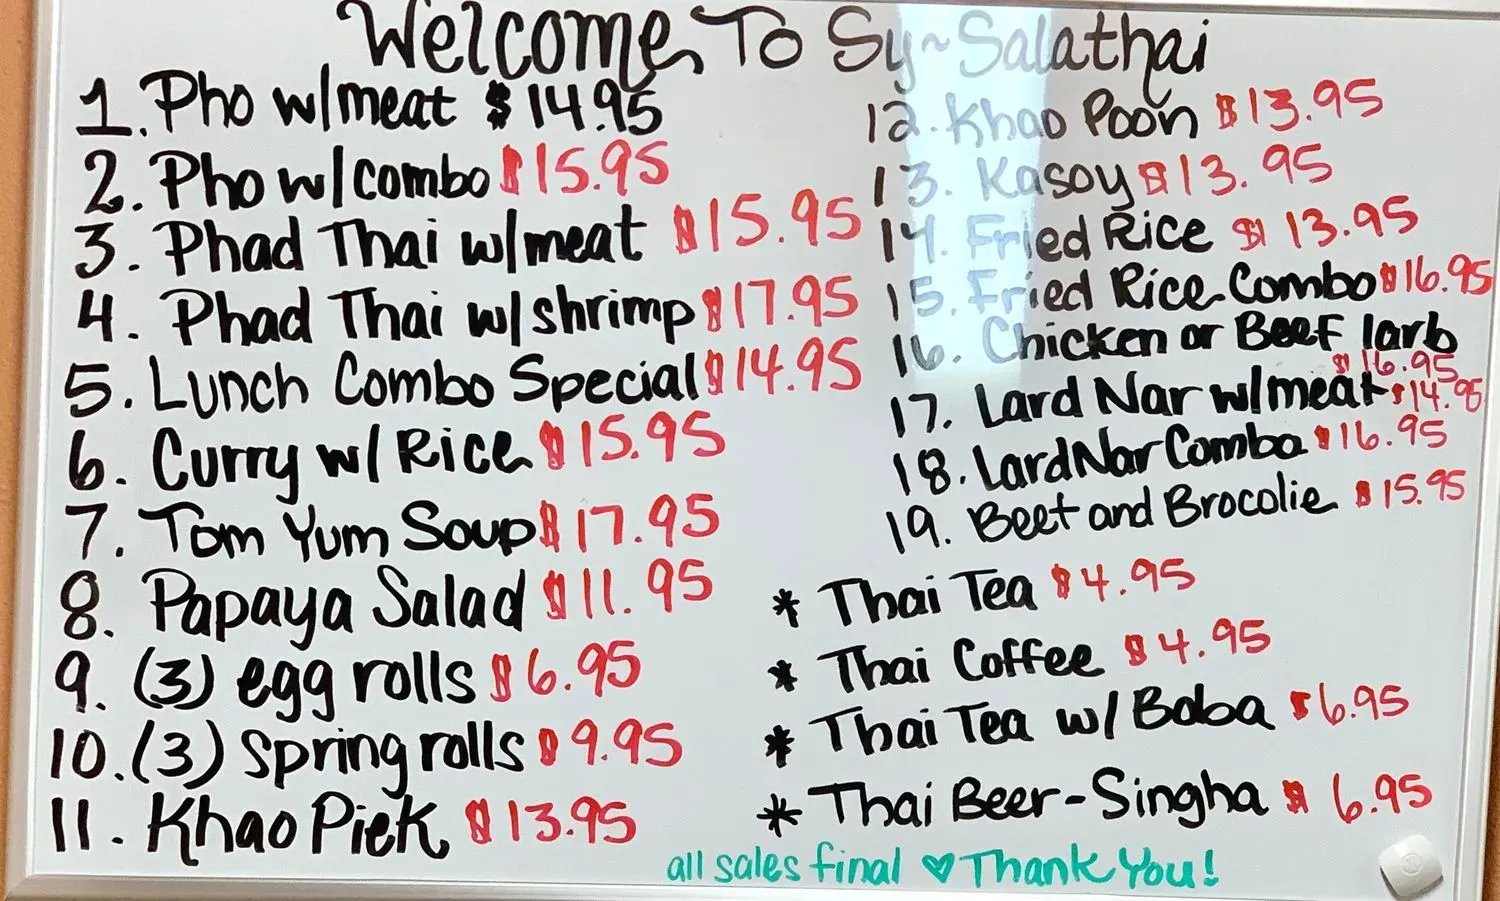 Welcome To Sy~Salathai
1. Pho w/meat $14.95
2. Pho w/combo $15.95
3. Phad Thai w/meat $15.95
4. Phad Thai w/shrimp $17.95
5. Lunch Combo Special $14.95
6. Curry w/ Rice $15.95
7. Tom Yum Soup $17.95
8. Papaya Salad $11.95
9. (3) egg rolls $6.95
10. (3) Spring rolls $9.95
11. Khao Piek $13.95
12. Khao Poon $13.95
13. Kasoy $13.95
14. Fried Rice $13.95
15. Fried Rice Combo $16.95
16. Chicken or Beef larb
$16.95
17. Lard Nar w/meat $14.95
18. Lard Nar Combo $16.95
19. Beef and Brocolie $15.95
* Thai Tea $4.95
* Thai Coffee $4.95
* Thai Tea w/ Boba $6.95
* Thai Beer-Singha $6.95
all sales final ♥ Thank You!